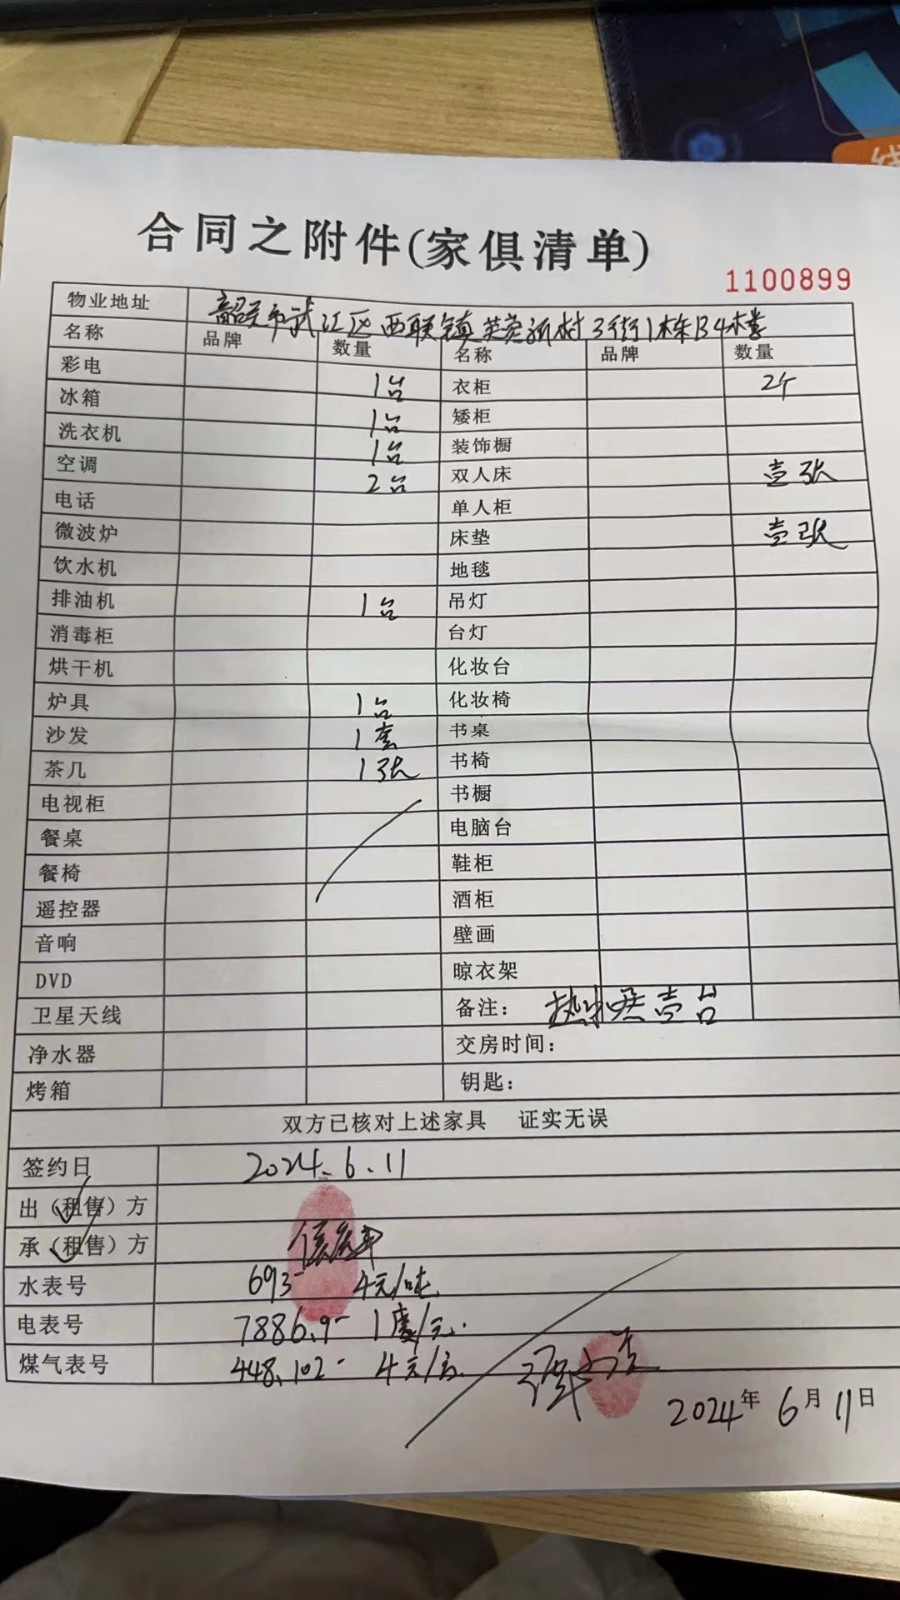 线
合同之附件(家俱清单)
1100899
物业地址 韶关市武江区西联镇芙蓉新村3街1栋B4楼
名称 品牌 数量 名称 品牌 数量
彩电 1台 衣柜 2个
冰箱 1台 矮柜
洗衣机 1台 装饰橱
空调 2台 双人床 壹张
电话 单人柜
微波炉 床垫 壹张
饮水机 地毯
排油机 1台 吊灯
消毒柜 台灯
烘干机 化妆台
炉具 1台 化妆椅
沙发 1套 书桌
茶几 1张 书椅
电视柜 书橱
餐桌 电脑台
餐椅 鞋柜
遥控器 酒柜
音响 壁画
DVD 晾衣架
卫星天线 备注: 热水器壹台
净水器 交房时间:
烤箱 钥匙:
双方已核对上述家具 证实无误
签约日 2024.6.11
出(租售)方
承(租售)方
水表号 693- 4元/吨
电表号 7886.9- 1度/元.
煤气表号 448.102- 4元/方
2024年6月11日